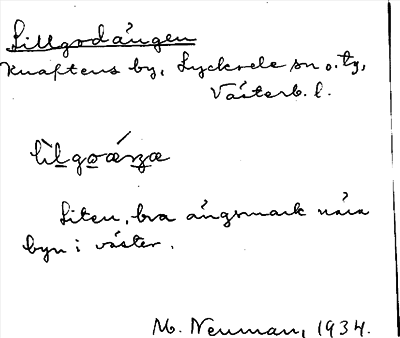 Lillgodängen
Knaftens by, Lycksele sn o. tg,
Västerb. l.
Liten, bra ängsmark nära
byn i väster.
M. Neuman, 1934.